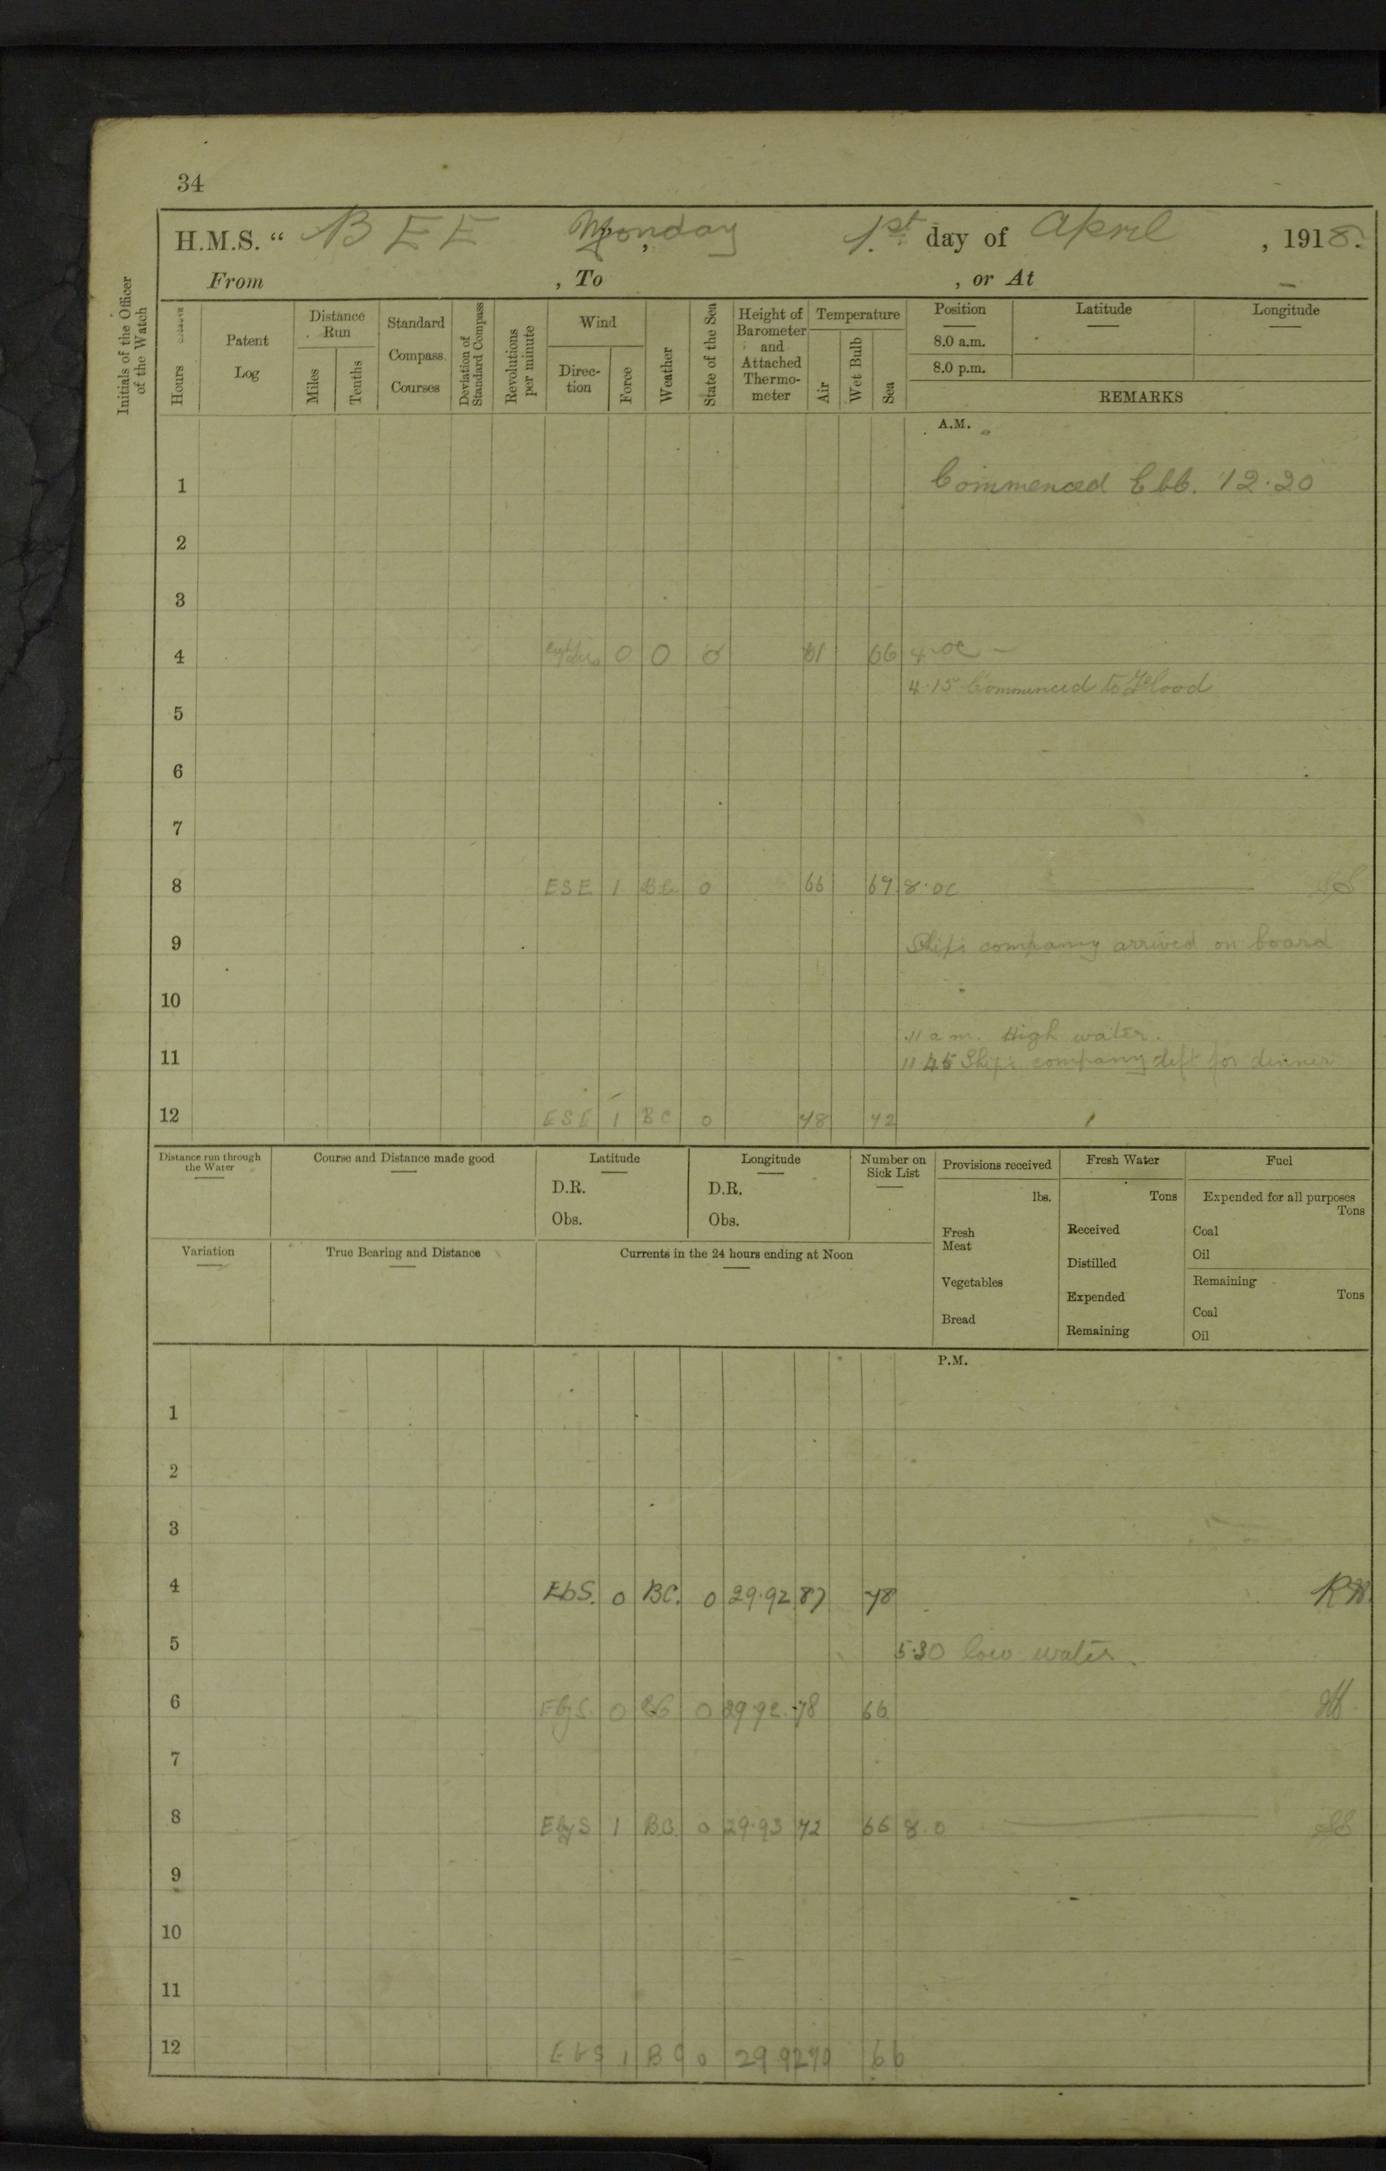 34
H.M.S. "BEE Monday, 1st day of April, 1918.
From , To , or At
Initials of the Officer of the Watch
Hours
Patent Log
Distance Run
Miles
Tenths
Standard Compass Courses
Deviation of Standard Compass
Revolutions per minute
Wind
Direc-tion
Force
Weather
State of the Sea
Height of Barometer and Attached Thermo-meter
Temperature
Air
Wet Bulb
Sea
Position
8.0 a.m.
8.0 p.m.
Latitude
Longitude
REMARKS
A.M.
1 Commenced Ebb. 12.20
2
3
4 0 0 0 61 66 4.0c —
4.15 Commenced to Flood
5
6
7
8 ESE 1 BC 0 66 67 8.0c
9 Ships company arrived on board
10
11 a m. High water.
11 11.45 Ships company left for dinner
12 ESE 1 BC 0 78 72
Distance run through the Water
Course and Distance made good
Latitude
D.R.
Obs.
Longitude
D.R.
Obs.
Number on Sick List
Provisions received
lbs.
Fresh Meat
Vegetables
Bread
Fresh Water
Tons
Received
Distilled
Expended
Remaining
Fuel
Expended for all purposes
Tons
Coal
Oil
Remaining
Tons
Coal
Oil
Variation
True Bearing and Distance
Currents in the 24 hours ending at Noon
P.M.
1
2
3
4 EbS. 0 BC. 0 29.92 87 78
5 5.30 low water.
6 EbyS. 0 0 29.92. 78 66
7
8 EbyS 1 B.C. 0 29.93 72 66 8.0
9
10
11
12 EbS 1 BC 0 29.92 70 66